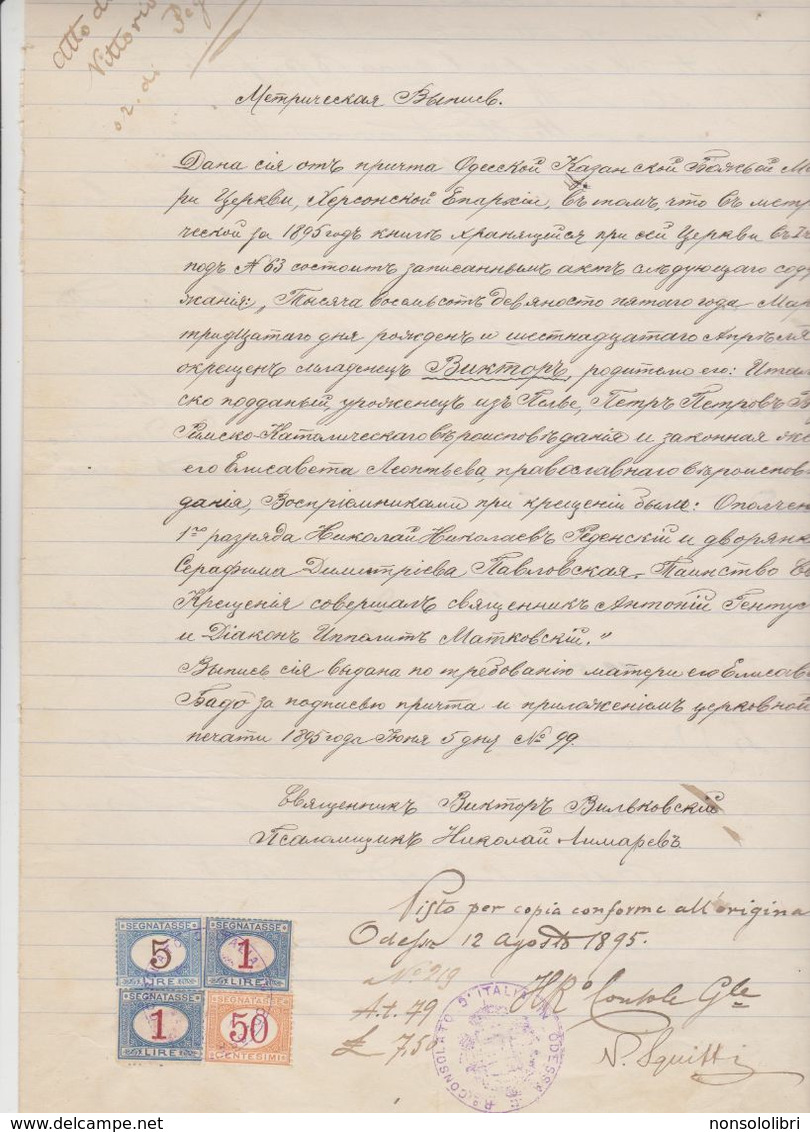 Atto di
Vittorio
di
Метрическая Выпись.
Дана сія отъ причта Одесской Казанской Божьей Мате
ри Церкви, Херсонской Епархіи, въ томъ, что въ метри
ческой за 1895 годъ книгѣ хранящейся при сей Церкви въ
подъ № 63 состоитъ записаннымъ актъ слѣдующаго содер
жанія: „Тысяча восемьсотъ девяносто пятаго года Мар
тридцатаго дня рожденъ и шестнадцатаго Апрѣля
окрещенъ младенецъ Викторъ, родители его: Италь
ско подданый, уроженецъ изъ Пелье, Петръ Петровъ Б
Римско-Католическаго вѣроисповѣданія и законная же
его Елисавета Леонтьева, православнаго вѣроиспов
данія, Воспріемниками при крещеніи были: Ополчен
1го разряда Николай Николаевъ Реденскій и дворянк
Серафима Димитріева Павловская. Таинство Св
Крещенія совершалъ священникъ Антоній Гентус
и Діаконъ Ипполитъ Матковскій."
Выпись сія выдана по требованію матери его Елисав
Бадо за подписью причта и приложеніемъ церковной
печати 1895 года Іюня 5 дня № 99.
Священникъ Викторъ Вильковскій
Псаломщикъ Николай Лимаревъ.
Visto per copia conforme all'origina
Odessa 12 Agosto 1895.
No 219
A.t. 79
£ 7,50
Il Ro Console Gle
SEGNATASSE 5 LIRE
SEGNATASSE 1 LIRE
SEGNATASSE 1 LIRE
SEGNATASSE 50 CENTESIMI
Ro CONSOLATO D'ITALIA ODESSA
nonsololibri